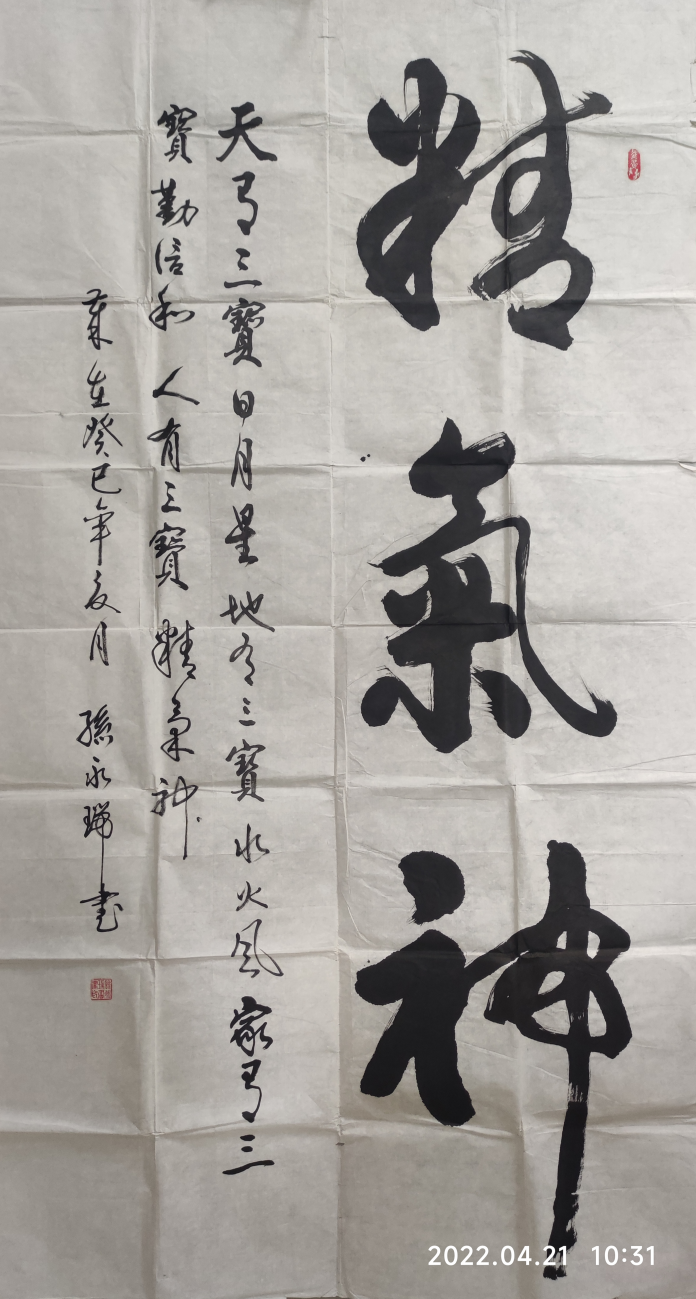 精氣神
天有三寶日月星地有三寶水火風家有三
寶勤信和人有三寶精氣神
歲在癸巳年夏月 孫永瑞書
2022.04.21 10:31